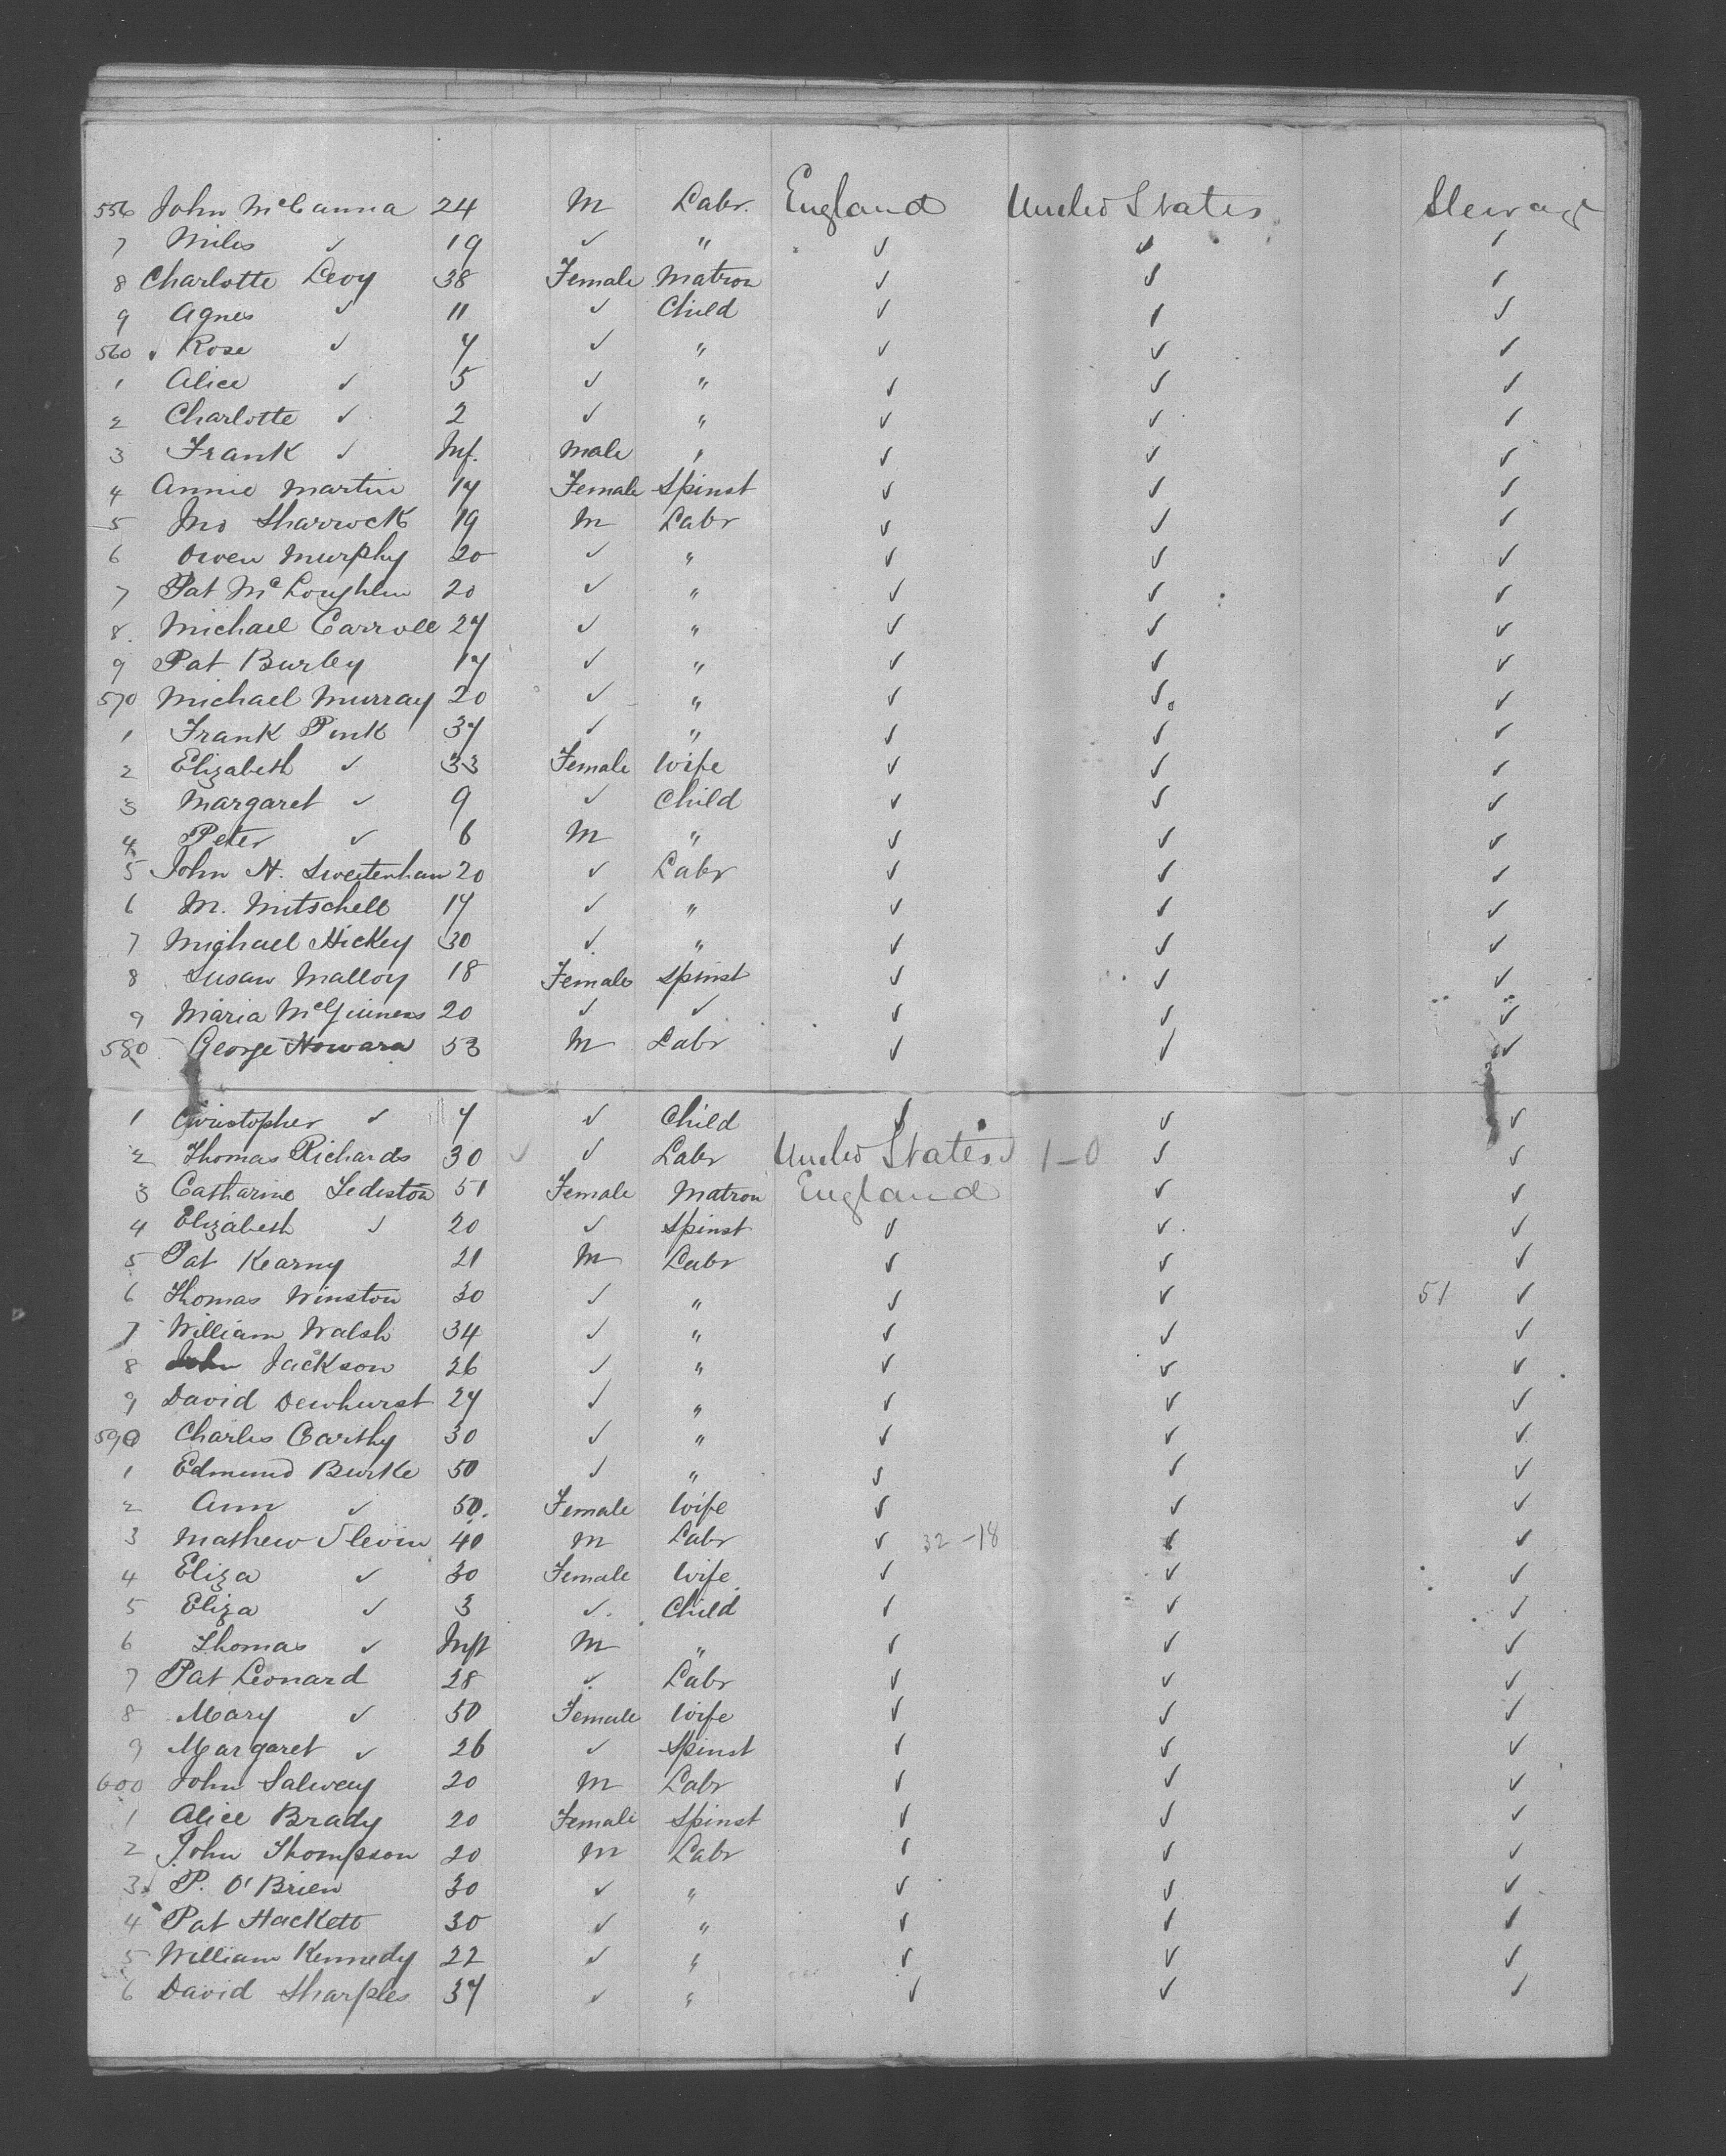 556 John McCanna 24 M Labr. England United States Steerage
7 Miles ✓ 19 ✓ " ✓ ✓ ✓
8 Charlotte Levy 38 Female Matron ✓ ✓ ✓
9 Agnes ✓ 11 ✓ Child ✓ ✓ ✓
560 ✓ Rose ✓ 7 ✓ " ✓ ✓ ✓
1 Alice ✓ 5 ✓ " ✓ ✓ ✓
2 Charlotte ✓ 2 ✓ " ✓ ✓ ✓
3 Frank ✓ Inf. Male " ✓ ✓ ✓
4 Annie Martin 17 Female Spinst ✓ ✓ ✓
5 Jno Sharrock 19 M Labr ✓ ✓ ✓
6 Owen Murphy 20 ✓ " ✓ ✓ ✓
7 Pat McLoughlin 20 ✓ " ✓ ✓ ✓
8. Michael Carroll 27 ✓ " ✓ ✓ ✓
9 Pat Burley 17 ✓ " ✓ ✓ ✓
570 Michael Murray 20 ✓ " ✓ ✓ ✓
1 Frank Pink 37 ✓ " ✓ ✓ ✓
2 Elizabeth ✓ 33 Female Wife ✓ ✓ ✓
3 Margaret ✓ 9 ✓ Child ✓ ✓ ✓
4 Peter ✓ 6 M " ✓ ✓ ✓
5 John H. Sweetenham 20 ✓ Labr ✓ ✓ ✓
6 M. Mitschell 17 ✓ " ✓ ✓ ✓
7 Mighael Hickey 30 ✓ " ✓ ✓ ✓
8 Susan Malloy 18 Female Spinst ✓ ✓ ✓
9 Maria McGuiness 20 ✓ ✓ ✓ ✓ ✓
580 George Howard 53 M Labr ✓ ✓ ✓
1 Christopher ✓ 7 ✓ Child ✓ ✓ ✓
2 Thomas Richards 30 ✓ ✓ Labr United States ✓ 1-0 ✓ ✓
3 Catharine 51 Female Matron England ✓ ✓
4 Elizabeth ✓ 20 ✓ Spinst ✓ ✓ ✓
5 Pat Kearny 21 M Labr ✓ ✓ ✓
6 Thomas Winston 30 ✓ " ✓ ✓ 51 ✓
7 William Walsh 34 ✓ " ✓ ✓ ✓
8 John Jackson 26 ✓ " ✓ ✓ ✓
9 David Dewhurst 27 ✓ " ✓ ✓ ✓
590 Charles Carthy 30 ✓ " ✓ ✓ ✓
1 Edmund Burke 50 ✓ " ✓ ✓ ✓
2 Ann ✓ 50. Female Wife ✓ ✓ ✓
3 Mathew Slevin 40 M Labr ✓ 32-18 ✓ ✓
4 Eliza ✓ 30 Female Wife ✓ ✓ ✓
5 Eliza ✓ 3 ✓ Child ✓ ✓ ✓
6 Thomas ✓ Inft M " ✓ ✓ ✓
7 Pat Leonard 28 ✓ Labr ✓ ✓ ✓
8 Mary ✓ 50 Female Wife ✓ ✓ ✓
9 Margaret ✓ 26 ✓ Spinst ✓ ✓ ✓
600 John Salwey 20 M Labr ✓ ✓ ✓
1 Alice Brady 20 Female Spinst ✓ ✓ ✓
2 John Thompson 20 M Labr ✓ ✓ ✓
3 P. O'Brien 30 ✓ " ✓ ✓ ✓
4 Pat Hackett 30 ✓ " ✓ ✓ ✓
5 William Kennedy 22 ✓ " ✓ ✓ ✓
6 David Sharples 37 ✓ " ✓ ✓ ✓